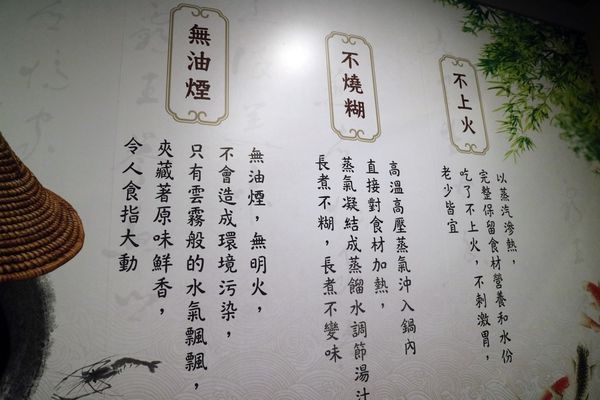 不上火
以蒸汽滲熱，
完整保留食材營養和水份
吃了不上火，不刺激胃，
老少皆宜
不燒糊
高溫高壓蒸氣沖入鍋內
直接對食材加熱，
蒸氣凝結成蒸餾水調節湯汁
長煮不糊，長煮不變味
無油煙
無油煙，無明火，
不會造成環境污染，
只有雲霧般的水氣飄飄，
夾藏著原味鮮香，
令人食指大動